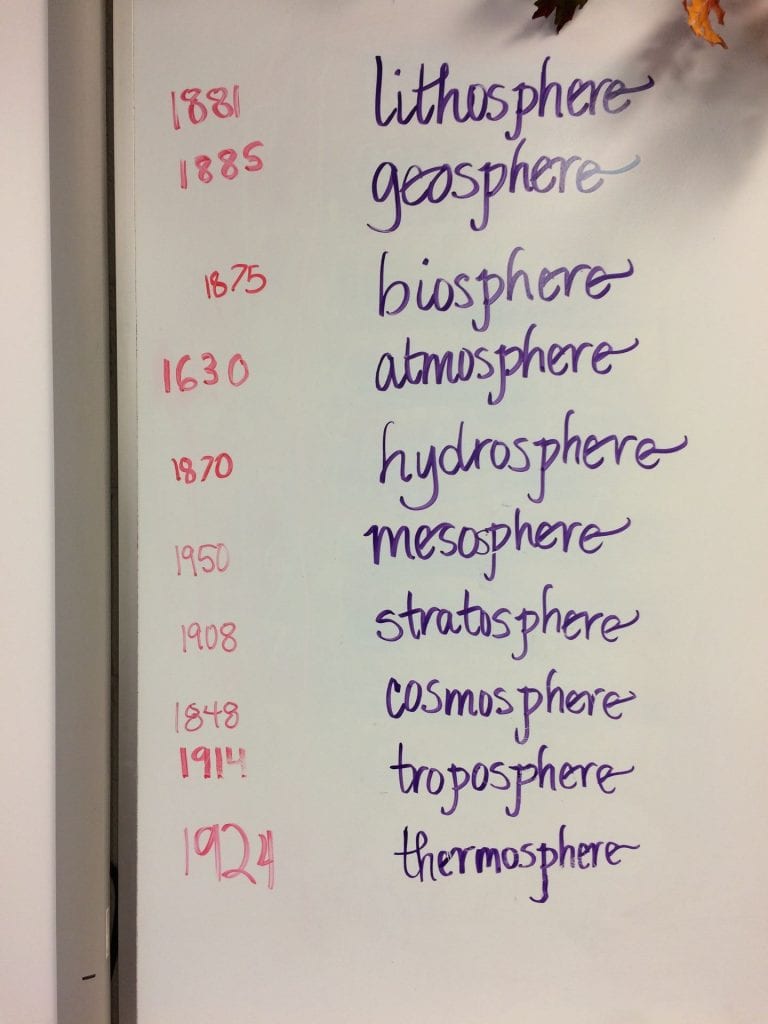 1881 lithosphere
1885 geosphere
1875 biosphere
1630 atmosphere
1870 hydrosphere
1950 mesosphere
1908 stratosphere
1848 cosmosphere
1914 troposphere
1924 thermosphere